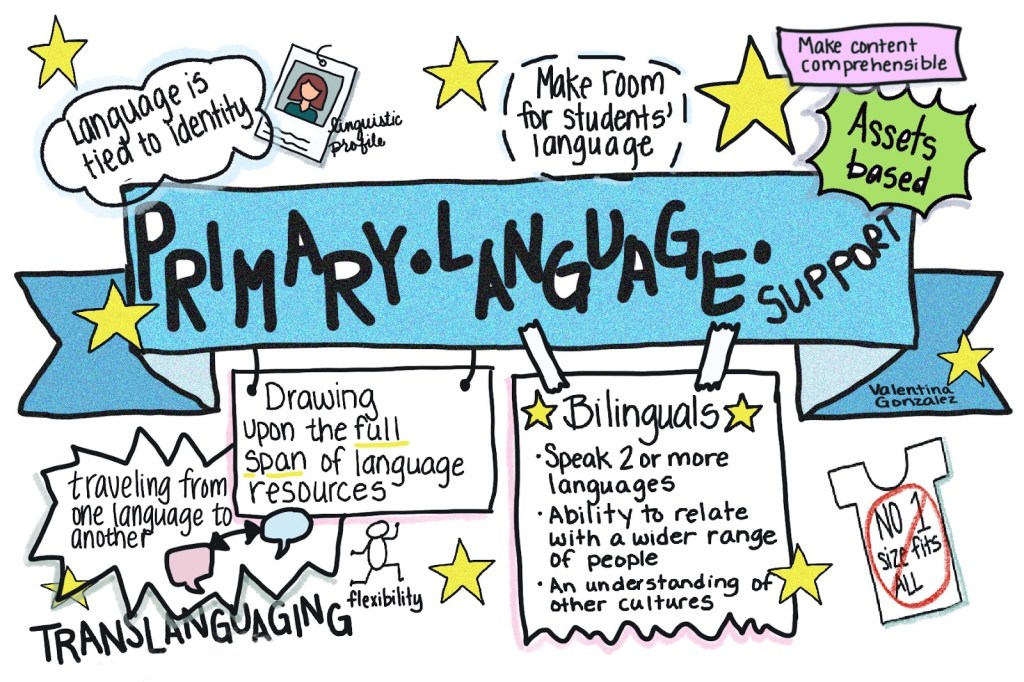 Language is
tied to identity
linguistic
profile
Make room
for students'
language
Make content
comprehensible
Assets
based
PRIMARY • LANGUAGE •
SUPPORT
Valentina
Gonzalez
Drawing
upon the full
span of language
resources
Bilinguals
• Speak 2 or more
languages
• Ability to relate
with a wider range
of people
• An understanding of
other cultures
traveling from
one language to
another
TRANSLANGUAGING
flexibility
NO 1
size fits
ALL